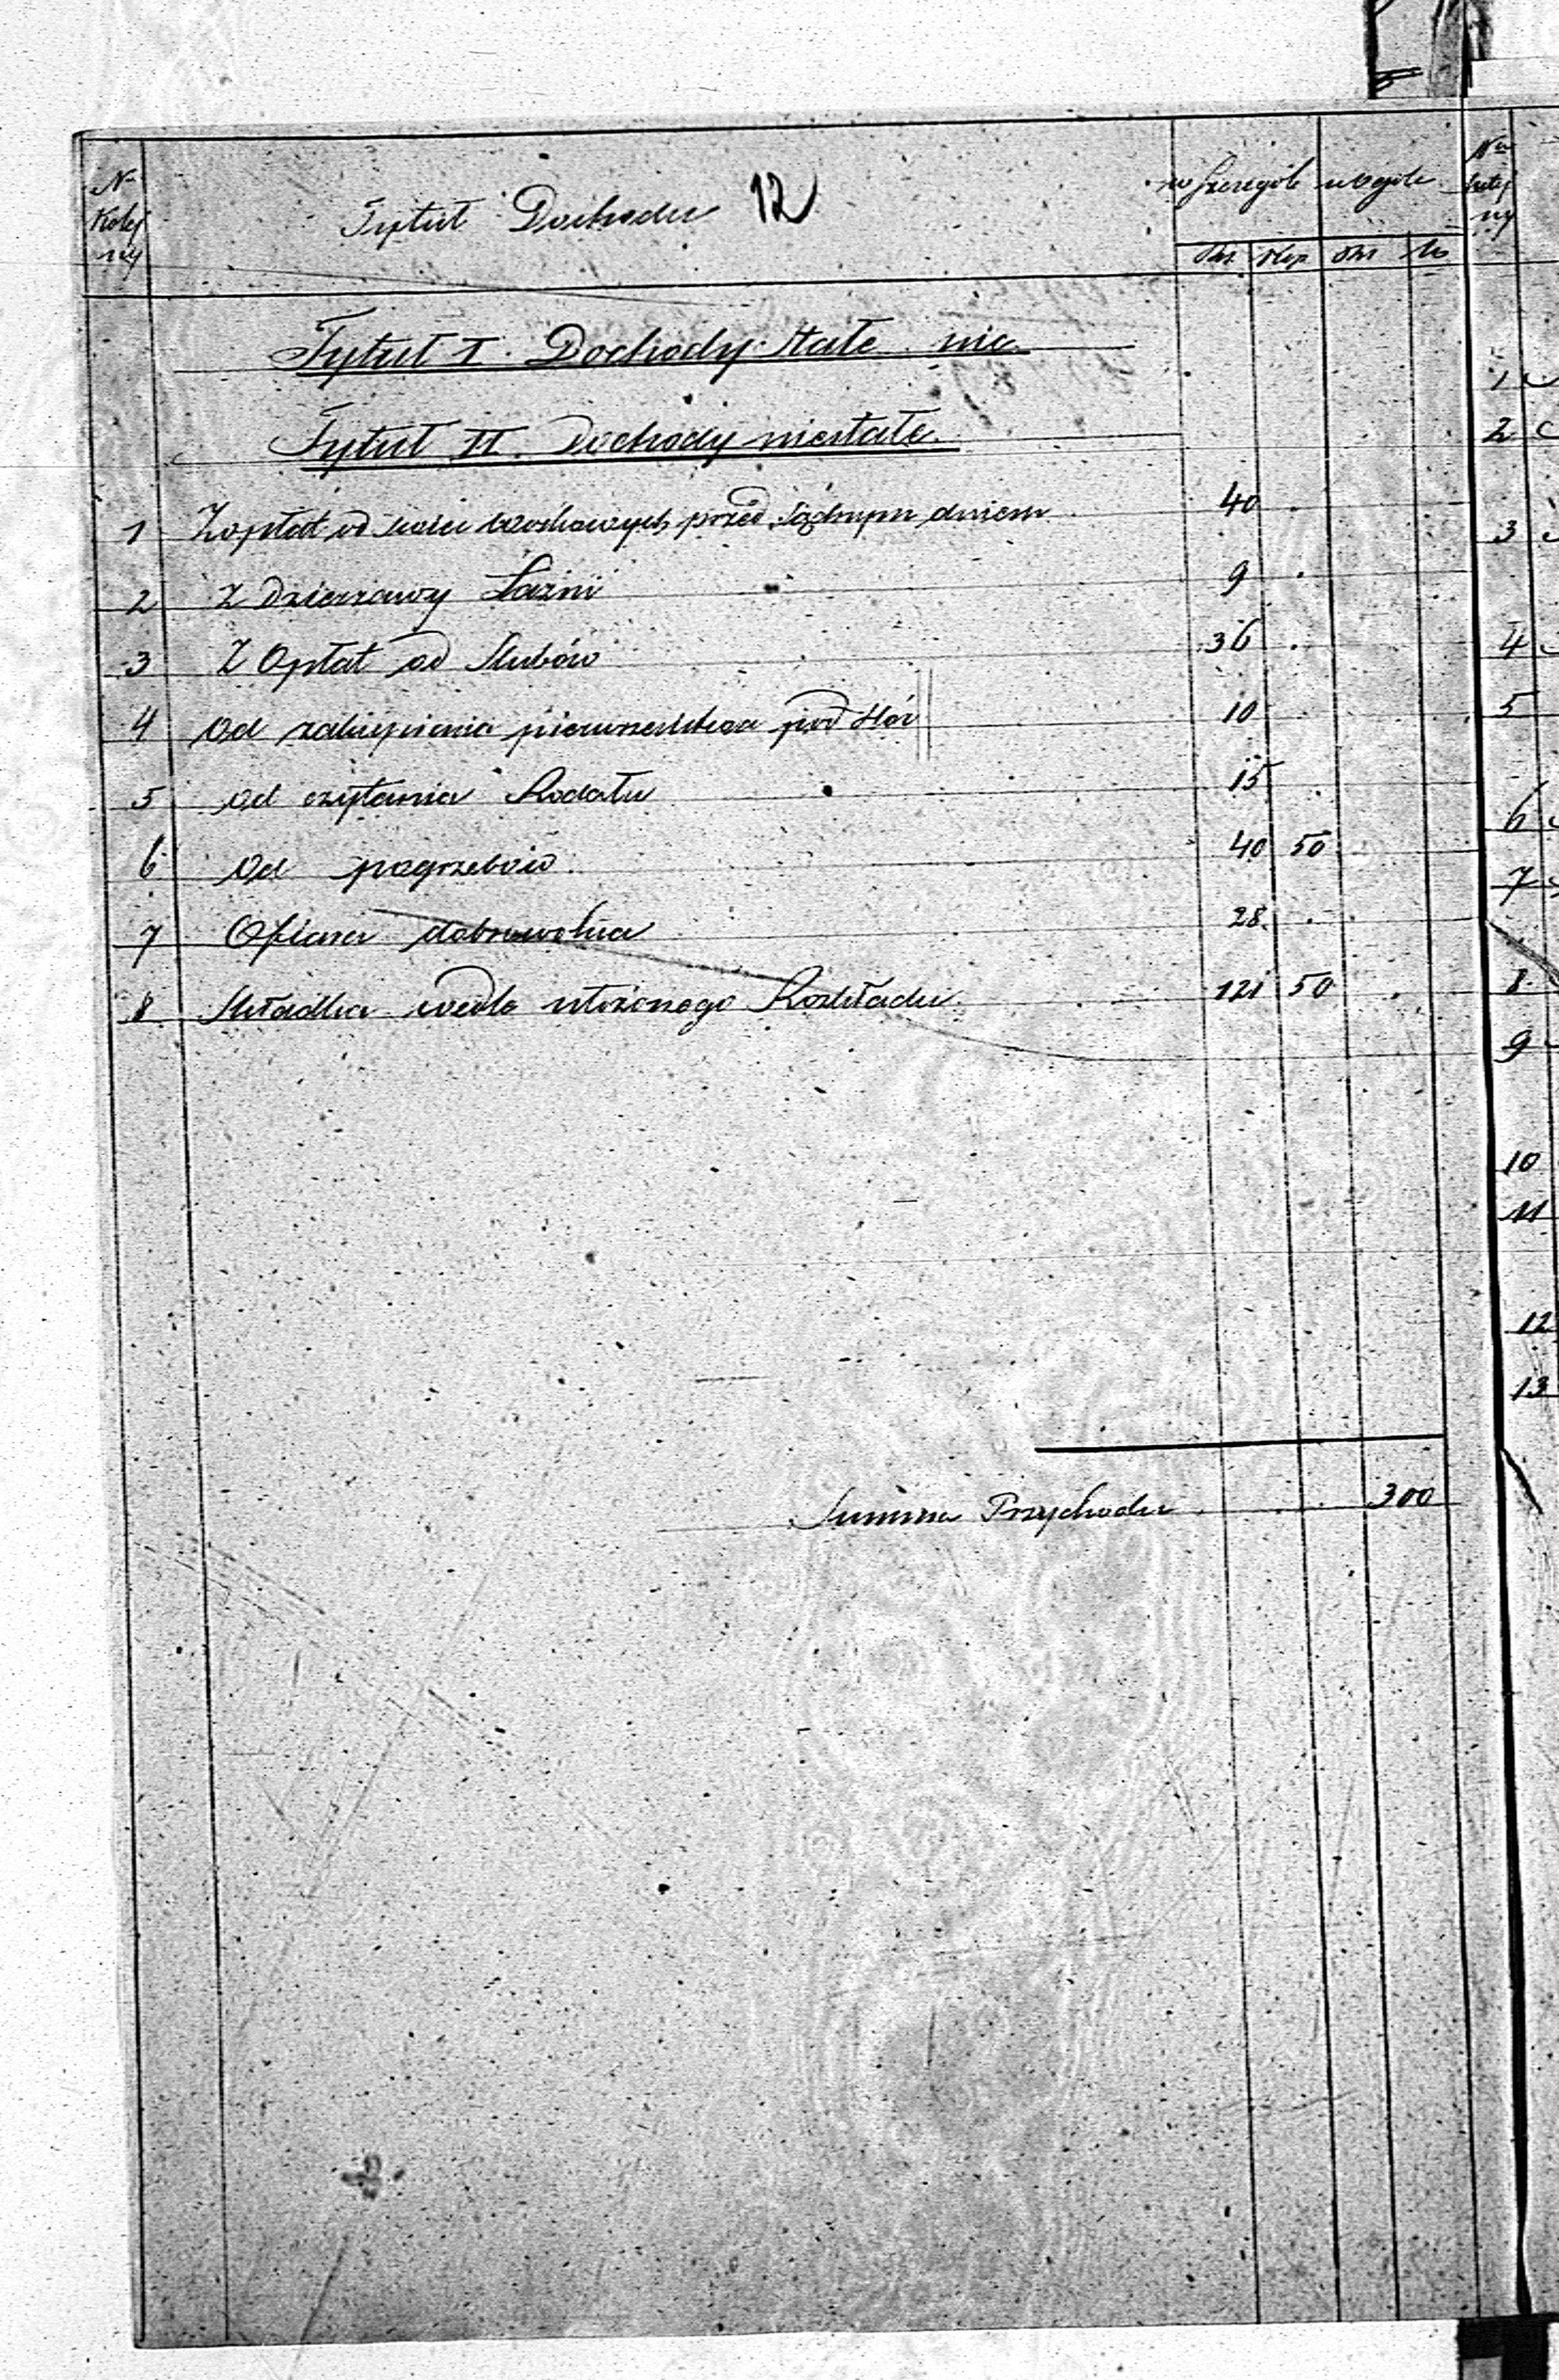 N
Kolej
ny
Tytuł Dochodu 12
w szczególe w ogóle
Rs. Kop. Rs. K
Tytuł I. Dochody stałe nic.
Tytuł II. Dochody niestałe.
1 Z opłat od przed Sądnym dniem 40
2 Z Dzierżawy Łaźni 9
3 Z Opłat od Ślubów 36
4 Od zakupienia 10
5 od czytania Rodału 15
6 Od pogrzebów 40 50
7 Ofiara dobrowolna 28
8 Składka wedle ułożonego Rozkładu 121 50
Summa Przychodu 300
N
ny
1
2
3
4
5
6
7
8
9
10
11
12
13